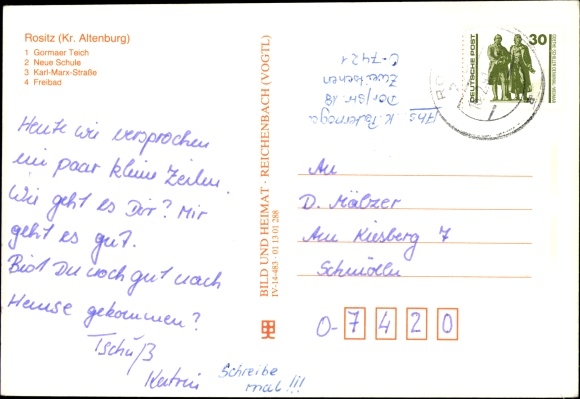 Rositz (Kr. Altenburg)
1 Gormaer Teich
2 Neue Schule
3 Karl-Marx-Straße
4 Freibad
Heute wie versprochen
ein paar kleine Zeilen.
Wie geht es Dir? Mir
geht es gut.
Bist Du noch gut nach
Hause gekommen?
Tschüß
Katrin
Schreibe
mal!!!
BILD UND HEIMAT · REICHENBACH (VOGTL)
IV-14-483 · 01 13 01 288
Abs K.
Dorfstr. 18
O-7421
DEUTSCHE POST
30
An
D. Mälzer
Am Kiesberg 7
Schmölln
O-7420